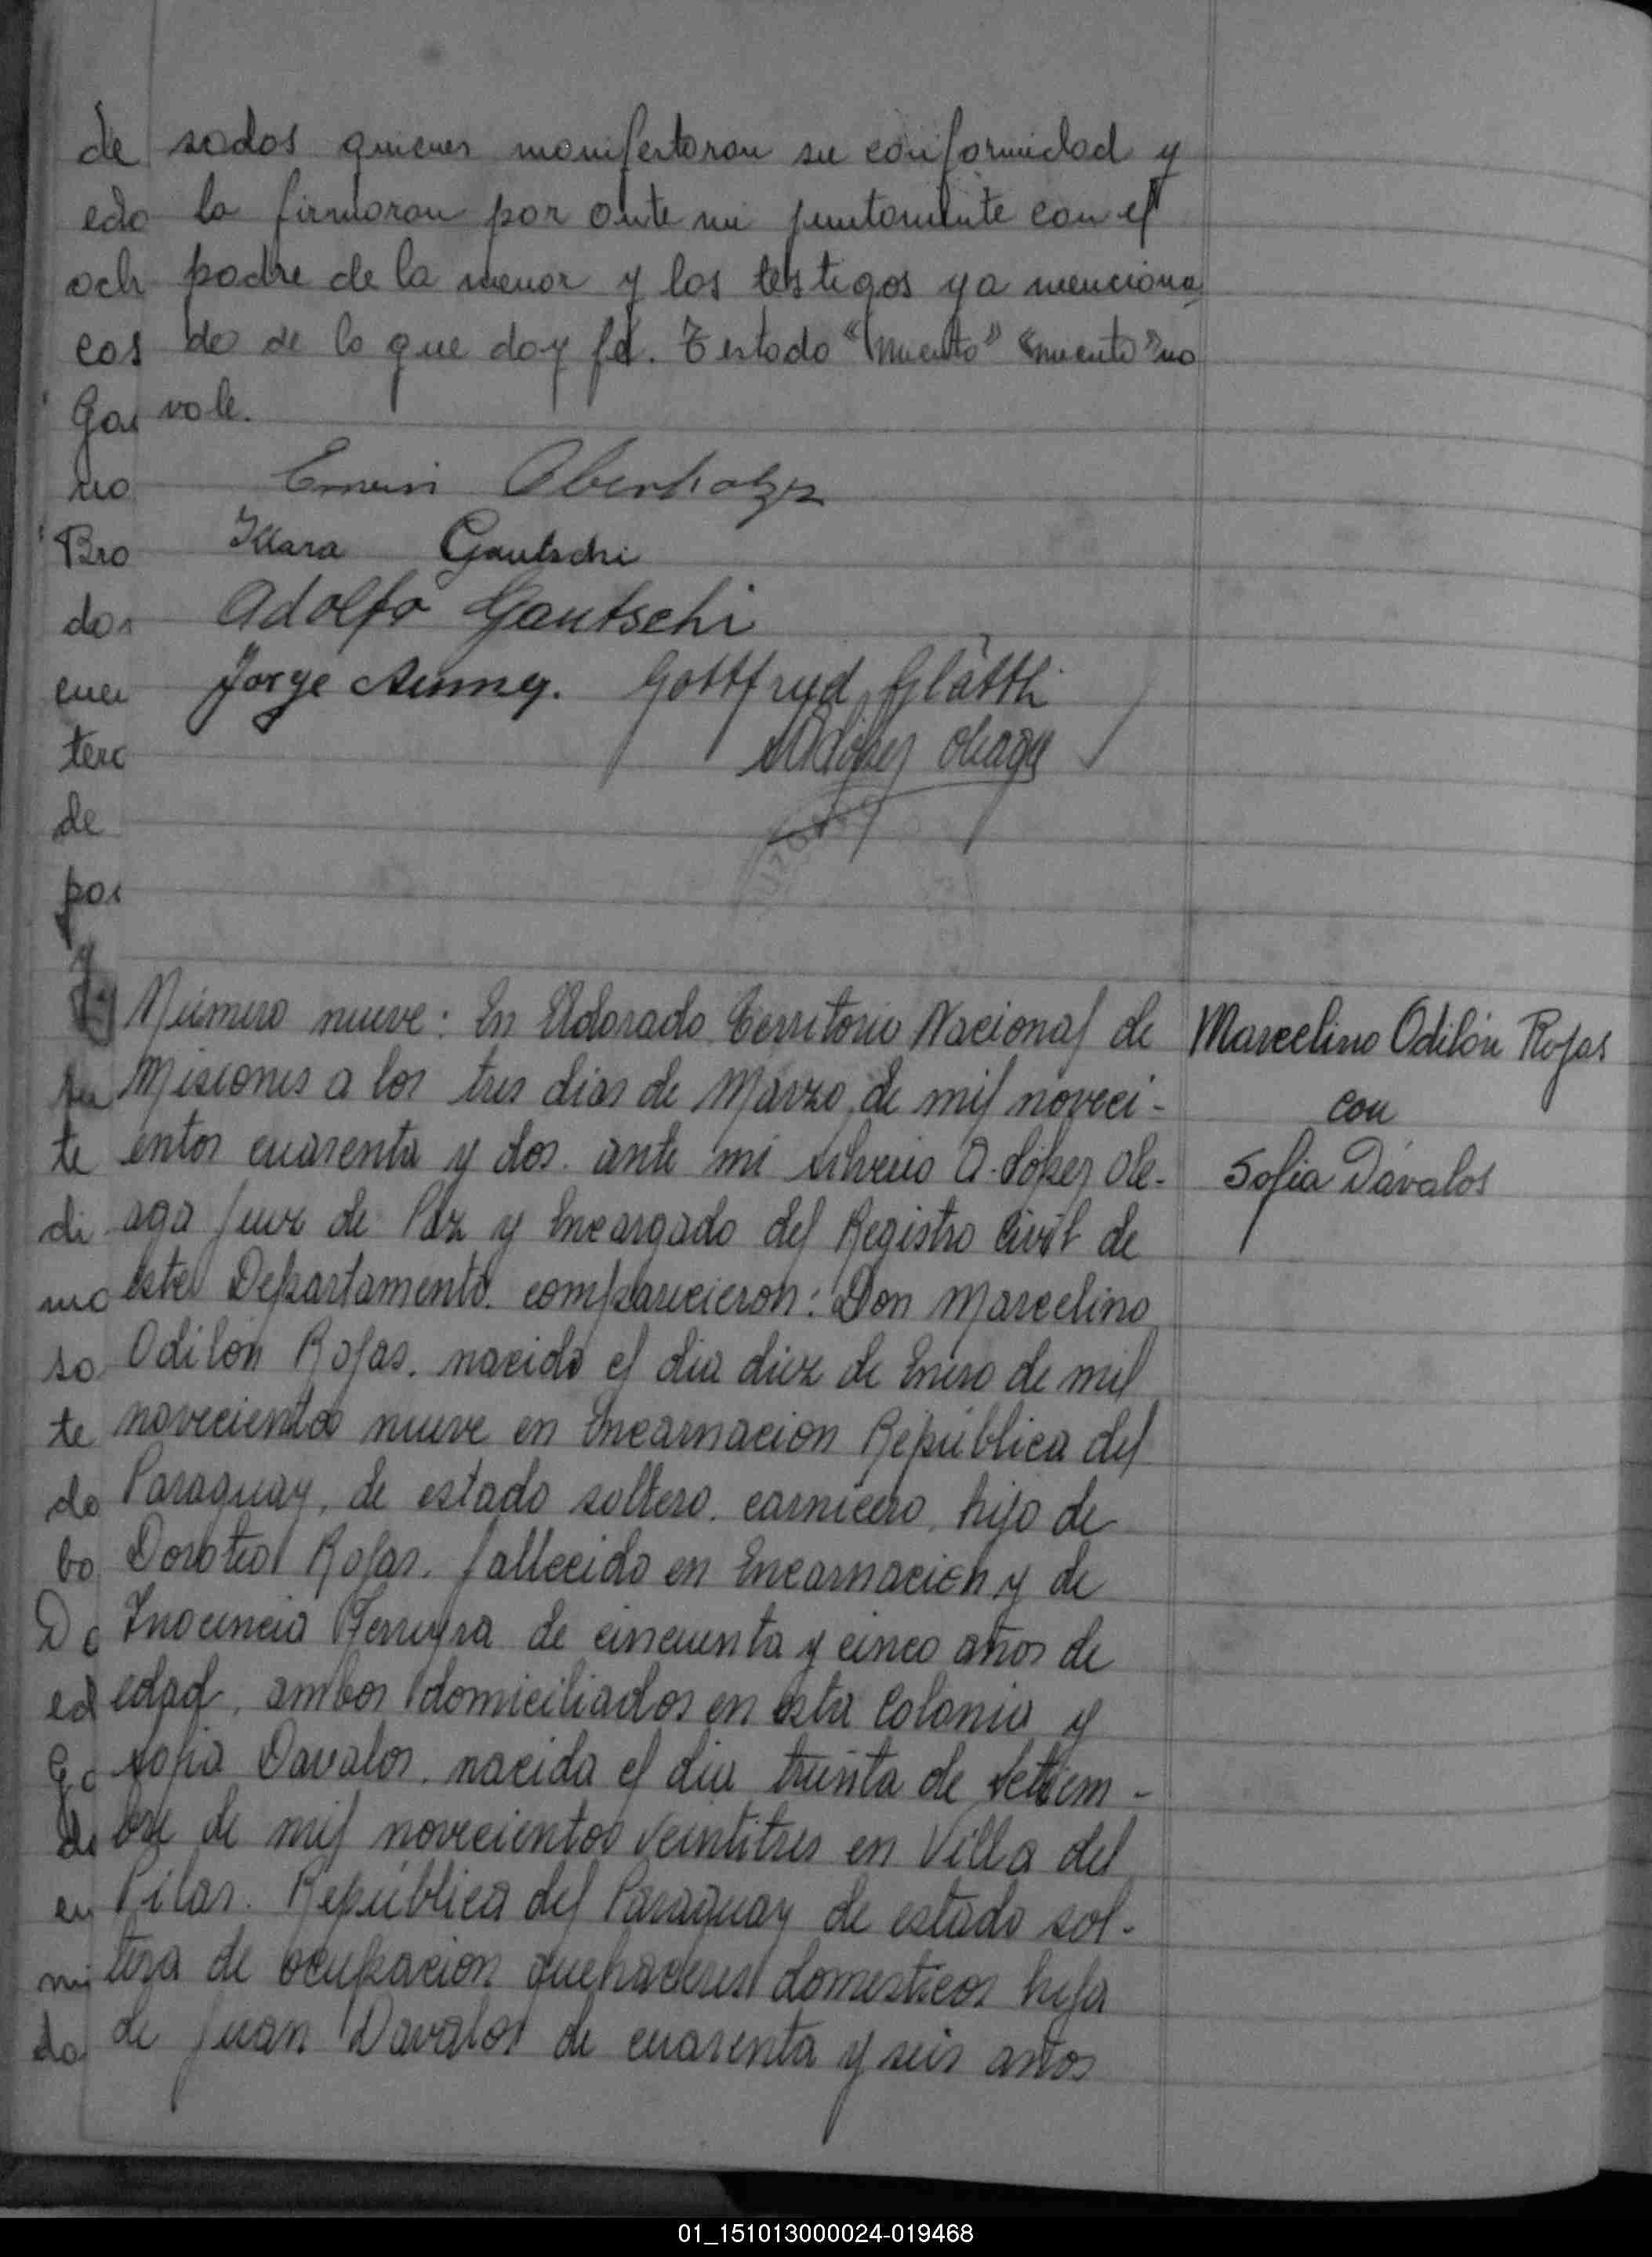 sados quienes manifestaron su conformidad y
la firmaron por ante mi juntamente con el
padre de la menor y los testigos ya menciona
do de lo que doy fé. Testado "muerto" "muerto" no
vale.
Erwin Oberholzer
Klara Gautschi
Adolfo Gautschi
Jorge Gottfried Glättli
López Oleaga
Número nueve: En Eldorado Territorio Nacional de
Misiones a los tres dias de Marzo de mil noveci-
entos cuarenta y dos. ante mi Silverio A. López Ole-
aga Juez de Paz y Encargado del Registro Civil de
este Departamento. comparecieron: Don Marcelino
Odilón Rojas. nacido el dia diez de Enero de mil
novecientos nueve en Encarnacion República del
Paraguay, de estado soltero. carnicero. hijo de
Doroteo Rojas. fallecido en Encarnacion y de
Inocencia Ferreyra de cincuenta y cinco años de
edad, ambos domiciliados en esta Colonia y
Sofia Davalos. nacida el dia treinta de Setiem-
bre de mil novecientos veintitres en Villa del
Pilar. República del Paraguay de estado sol-
tera de ocupacion quehaceres domesticos hija
de Juan Davalos de cuarenta y seis años
Marcelino Odilón Rojas
con
Sofia Dávalos
de
edo
och
cos
Gau
no
Bro
dos
cue
terc
de
por
y
su
te
di
mo
so
te
do
bo
Do
ed
de
en
mi
do
01_151013000024-019468